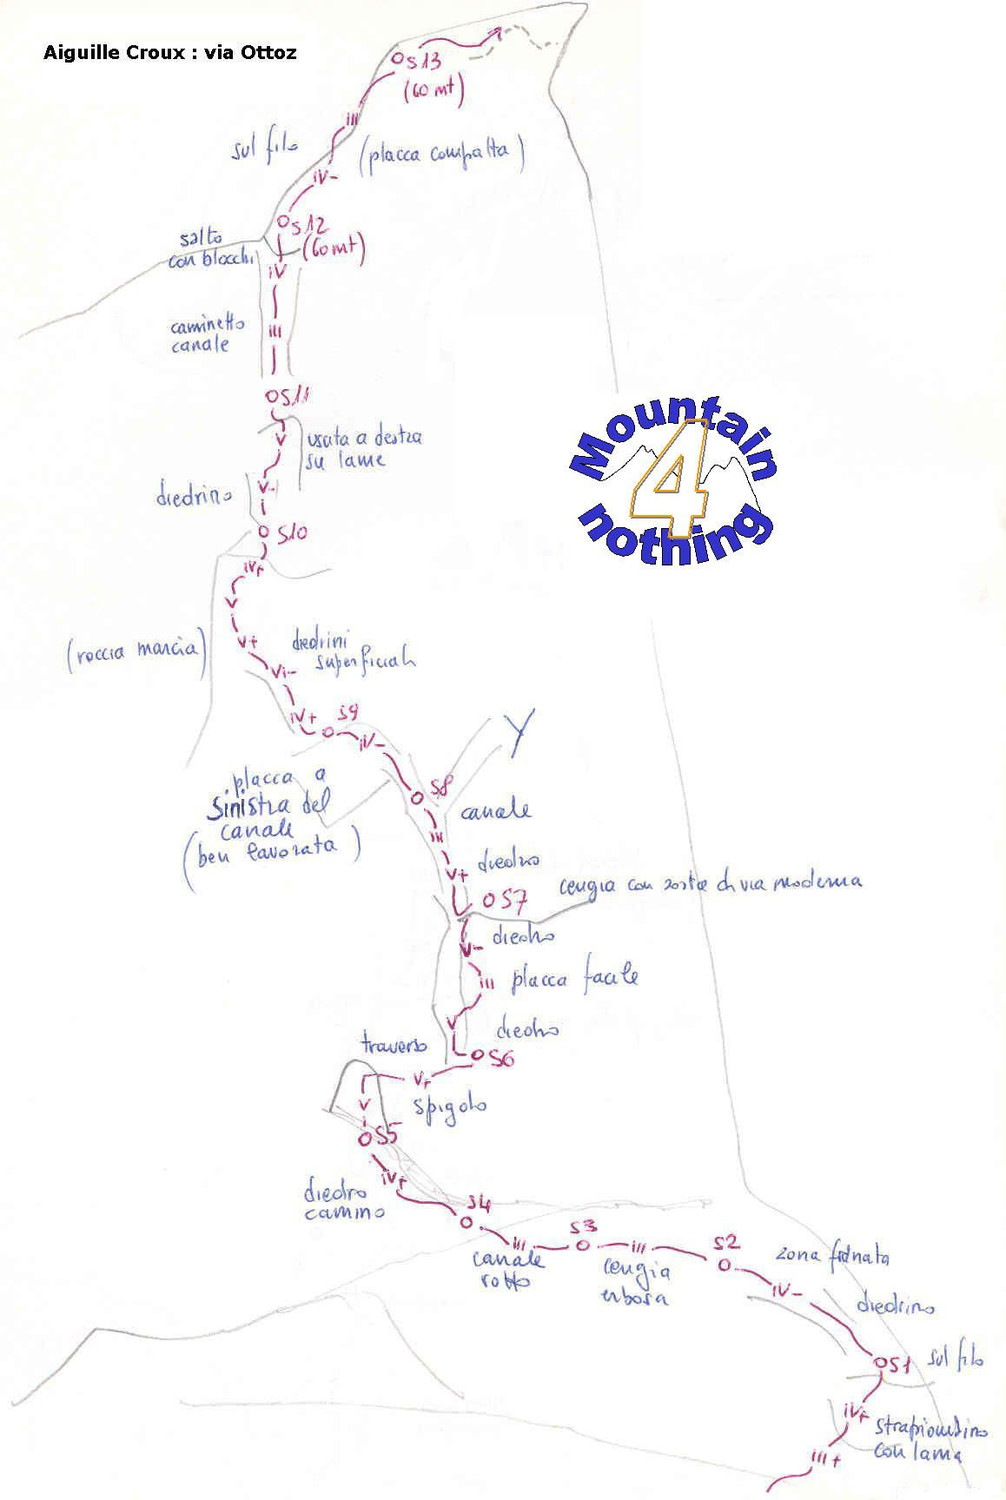 Aiguille Croux : via Ottoz
S13
(60 mt)
III
sul filo
(placca compatta)
IV-
S12
(60mt)
salto
con blocchi
IV
caminetto
canale
III
S11
V
uscita a destra
su lame
diedrino
V-
S10
IV+
V
V+
(roccia marcia)
diedrini
superficiali
VI-
IV+
S9
IV-
Y
placca a
sinistra del
canale
(ben lavorata)
S8
canale
III
diedro
V+
S7
cengia con soste di via moderna
diedro
V-
III
placca facile
V
diedro
S6
traverso
V+
spigolo
V
S5
IV+
diedro
camino
S4
III
canale
rotto
S3
III
cengia
erbosa
S2
zona
IV-
diedrino
S1
sul filo
IV+
strapiombino
con lama
III+
Mountain
4
nothing